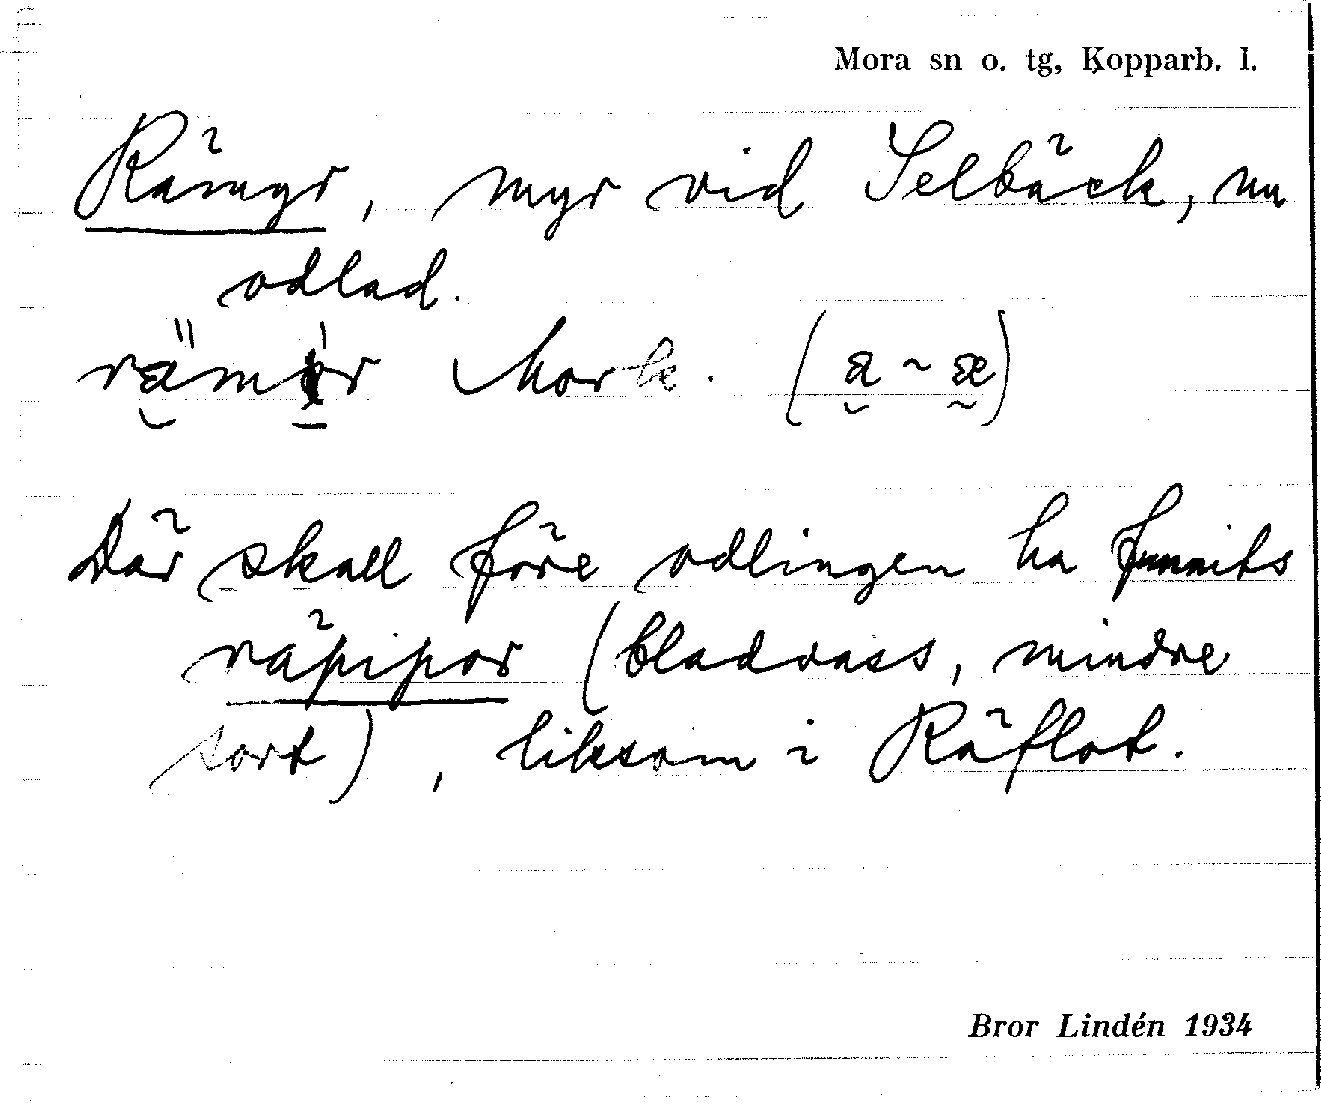 Mora sn o. tg, Kopparb. l.
Rämyr, myr vid Selbäck, nu
odlad.
Mork. (a ~ æ)
Där skall före odlingen ha funnits
räpipor (bladvass, mindre
sort), liksom i Räflot.
Bror Lindén 1934